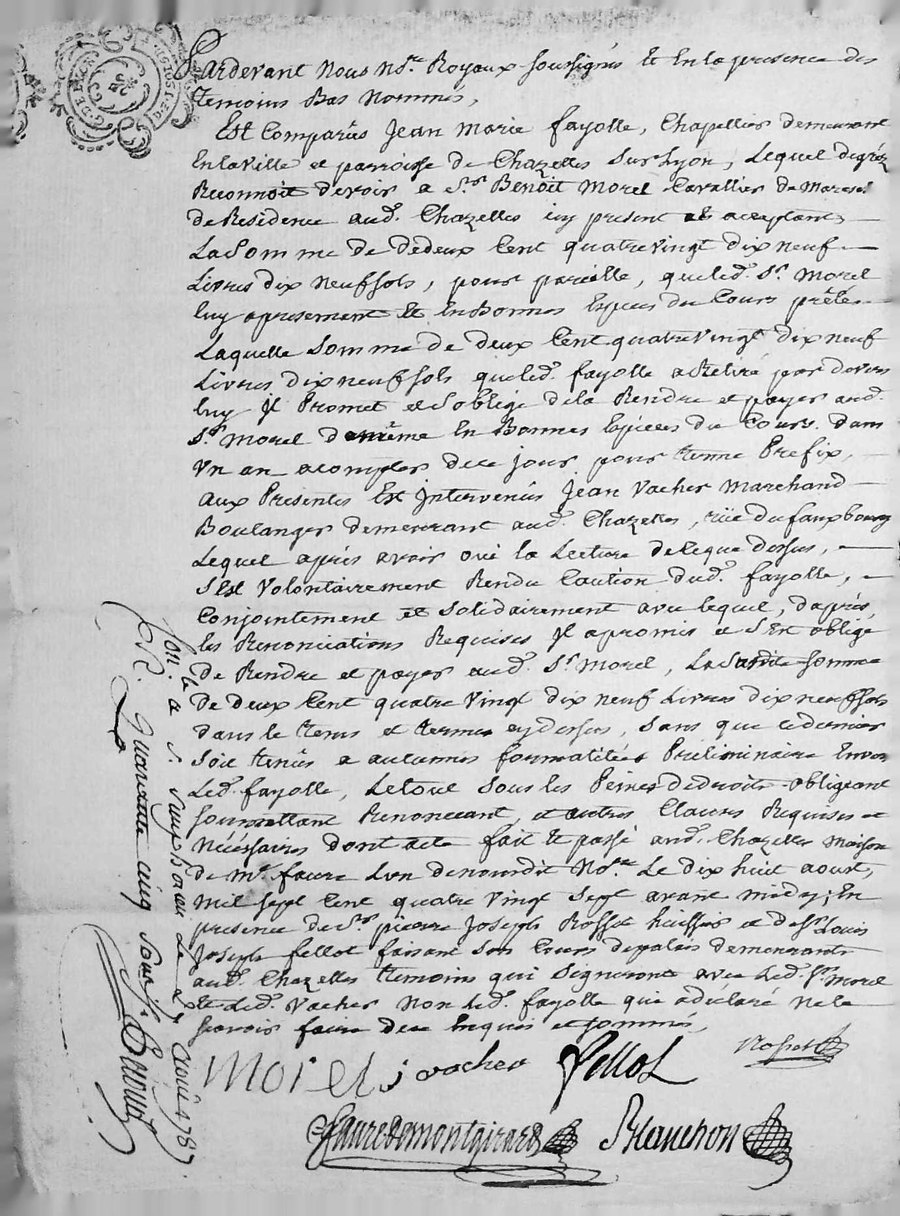 Pardevant Nous No.re Royaux soussignés et En la presence des
temoins Bas Nommés,
Est Comparûs Jean Marie fayolle, Chapellier demeurant
En la ville et parroisse de Chazelles sur Lyon, Lequel de gréz
Reconnoit devoir a S.r Benoit Morel Cavallier de Maress.
de Residence aud. Chazelles icy present et acceptant,
La Somme de de deux Cent quatre vingt dix neuf
Livres dix neuf sols, pour pareille, que led. S.r Morel
luy a presement Et En Bonnes Especes du Cours prêtée
Laquelle Somme de deux Cent quatre vingt dix neuf
Livres dix neuf sols que led. fayolle a Retiré par devers
luy Il Promet et S'oblege de la Rendre et payer aud.
S.r Morel de même En Bonnes Espéces du Cours dans
Un an a compter de ce jour pour terme Prefix,
aux Presentes Est Intervenûs Jean Vacher Marchand
Boulanger demeurant aud. Chazelles, rüe du fauxbourg
Lequel aprés avoir oui la Lecture de Ceque dessus,
s'Est Volontairement Rendu Caution dud. fayolle,
Conjointement et Solidairement avec lequel, d'aprés
les Renonciations Requises Il a promis et s'Est obligé
de Rendre et payer aud. S.r Morel, La Susdite Somme
de deux Cent quatre Vingt dix neuf Livres dix neuf sols
dans le tems et terme cy dessus, sans que ce dernier
soit tenûs a aucunes formalités Préliminaire Envers
Led. fayolle, Le tout sous les Peines de droits obligeant
soumettant Renonceant, et autres Clauses Requises et
Nécéssaires dont acte fait Et passé aud. Chazelles maison
de M.e faure L'un de nousdit No.re Le dix huit aoust,
mil sept Cent quatre Vingt Sept avant midy; En
presence de S.r pierre Joseph Rosset huissier et de S.r Louis
Joseph fellot faisant son Cours de palais demeurants
aud. Chazelles temoins qui signeront avec Led. S.r Morel
Et Led. Vacher non Led. fayolle qui a déclaré ne le
scavoir faire de ce Enquis et sommé,
Morel j vacher fellot Rosset
faure de montgirard
Con.le a S. Le 28 aout 1787
R. quarante cinq sous